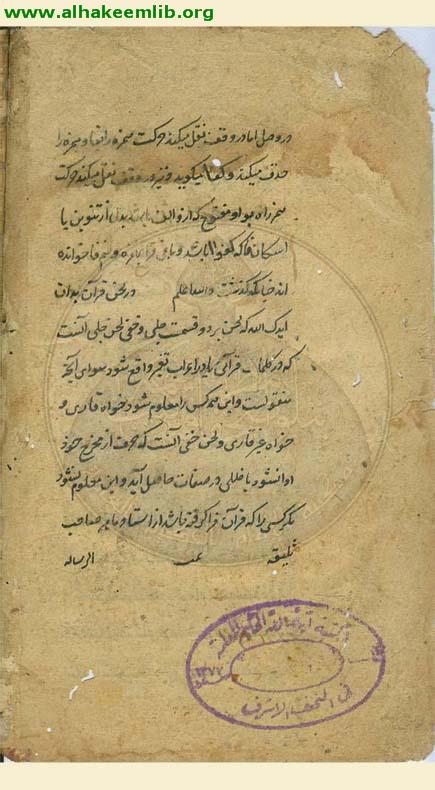 www.alhakeemlib.org
در وصل اما در وقف نقل میکند حرکت همزه را بفا و همزه را
حذف میکند و کفا میکوید و نیز در وقف نقل میکند حرکت
همزه را بواو مفتوح که از و الف باشد بدل از تنوین با
اسکان فا که کفوا باشد و باقی قرا بهمزه و ضم فا خوانده
اند چنانکه گذشت والله اعلم در لحن قرآن بدان
ایدک الله که لحن بر دو قسمت جلی و خفی لحن جلی آنست
که در کلمات قرآنی یا در اعراب تغیر واقع شود سوای آنچه
منقولست و این همه کس را معلوم شود خواه قاری و
خواه غیر قاری و لحن خفی آنست که حرف از مخرج خود
ادا نشود یا خللی در صفات حاصل آید و این معلوم نشود
مکر کسی را که قرآن فرا کرفته باشد از استاد ماهر صاحب
سلیقه تمت الرساله
مكتبة آية الله الحكيم العامة
۱۳۷۷
في النجف الاشرف